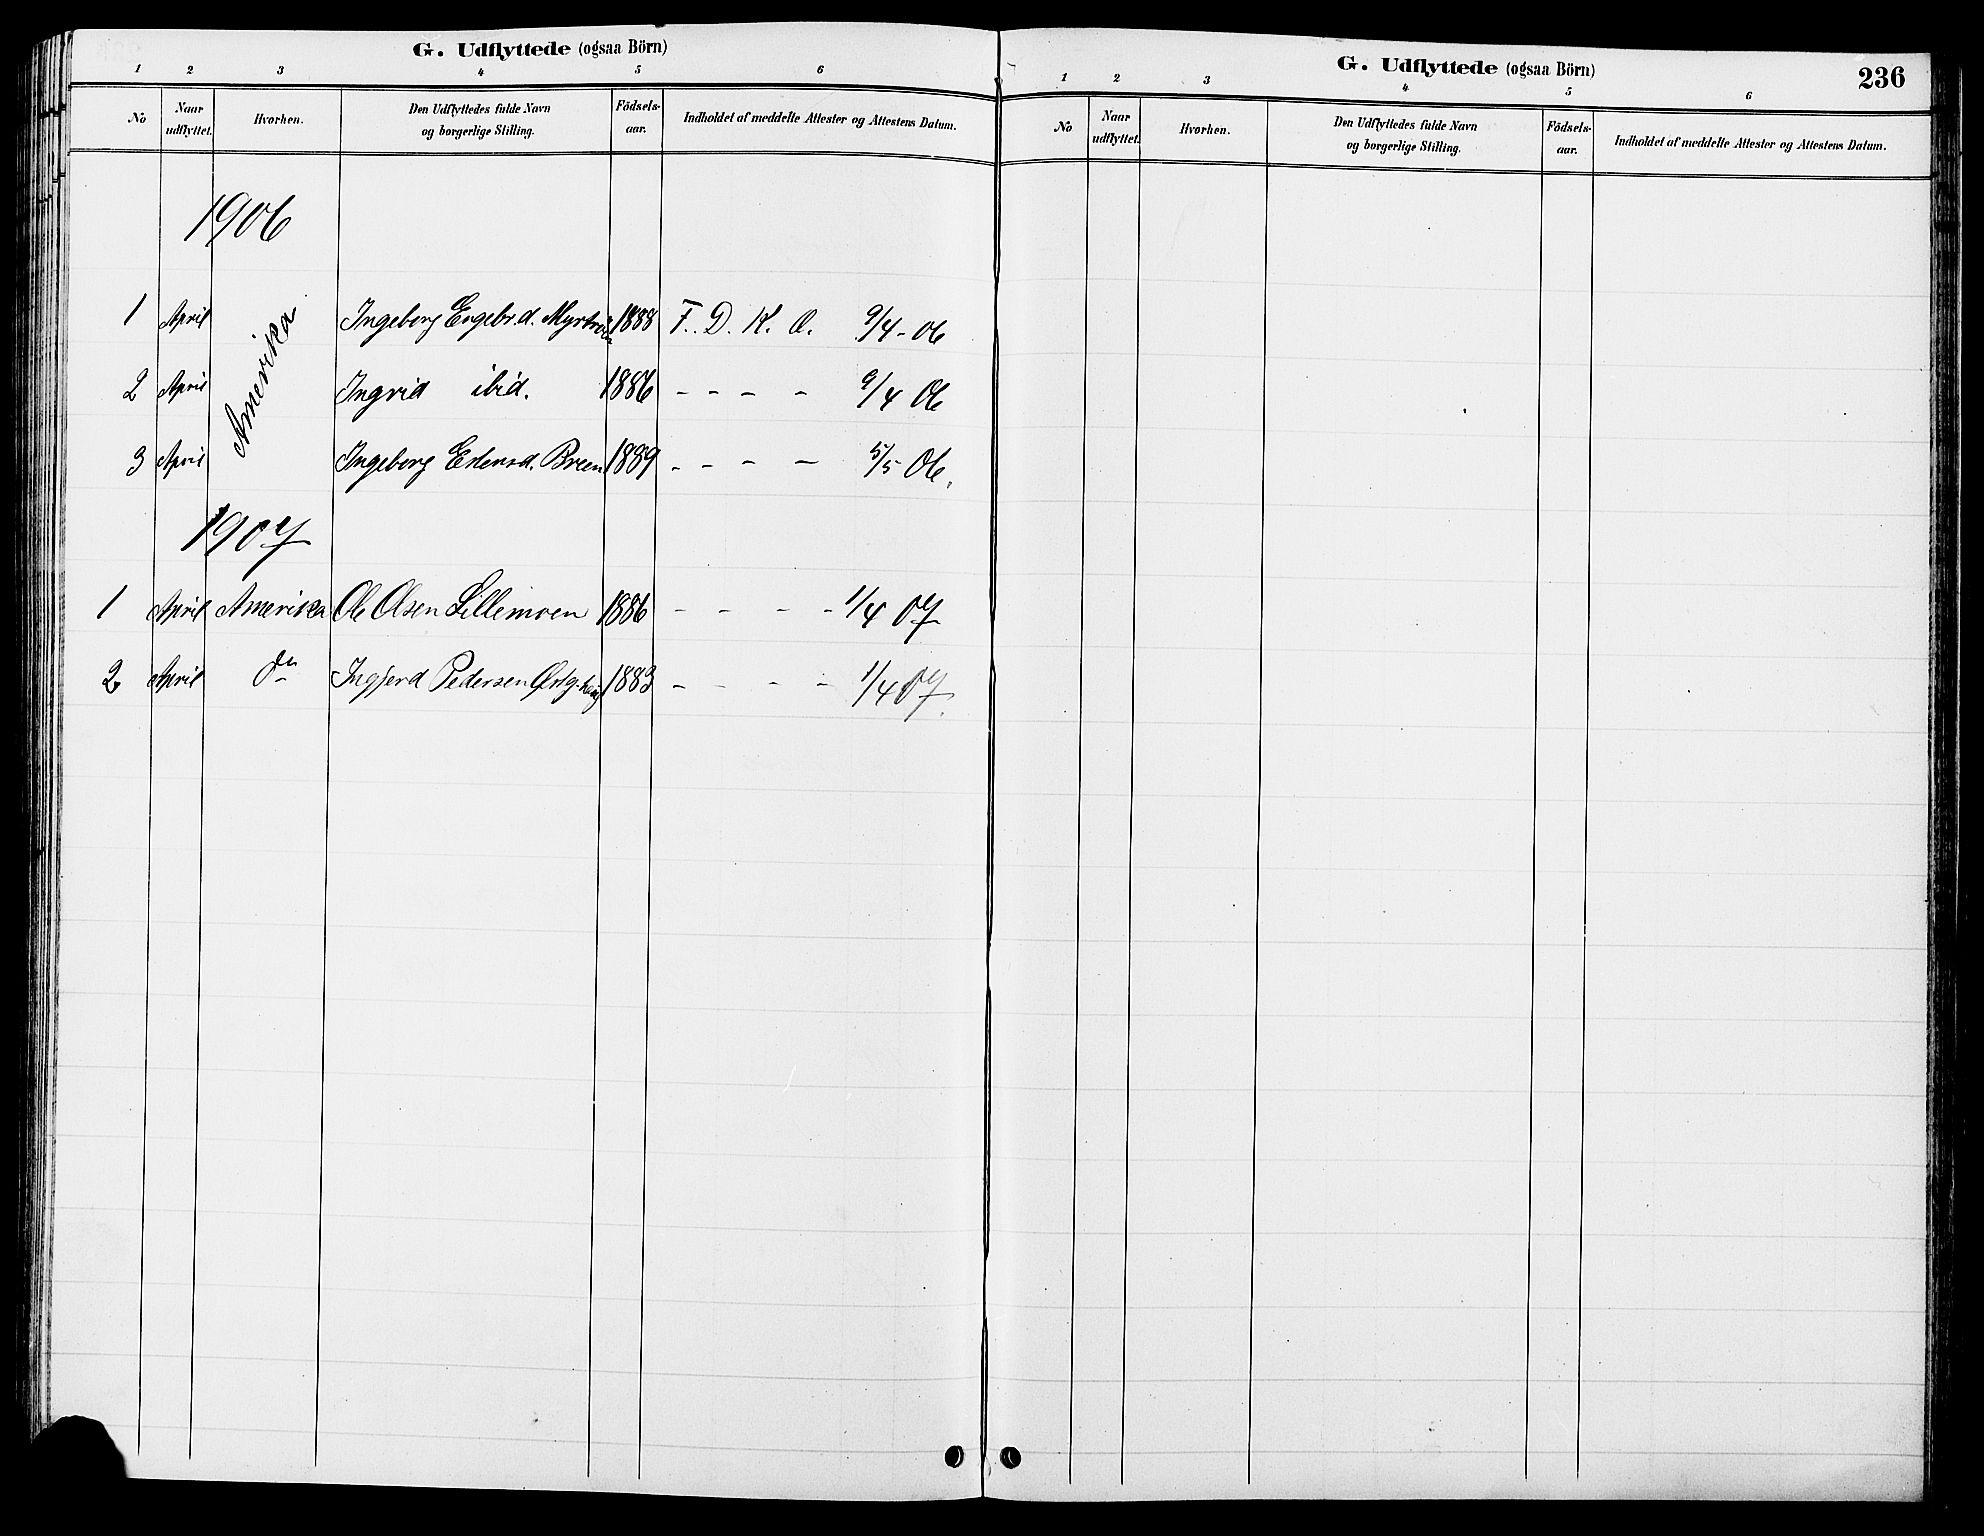 G. Udflyttede (ogsaa Börn)
1 2 3 4 5 6
No Naar udflyttet. Hvorhen. Den Udflyttedes fulde Navn og borgerlige Stilling. Födsels-aar. Indholdet af meddelte Attester og Attestens Datum.
1906
1 April Amerika Ingeborg Engebr.d. 1888 F. D. K. A. 9/4-06
2 April Ingrid ibid. 1886 - - - - 9/4 06
3 April Ingeborg Breen 1889 - - - - 5/5 06.
1907
1 April Amerika Ole Olsen Lillemoen 1886 - - - - 1/4 07
2 April do Ingjerd Pedersen 1883 - - - - 1/4 07.
G. Udflyttede (ogsaa Börn) 236
1 2 3 4 5 6
No Naar udflyttet. Hvorhen. Den Udflyttedes fulde Navn og borgerlige Stilling. Födsels-aar. Indholdet af meddelte Attester og Attestens Datum.